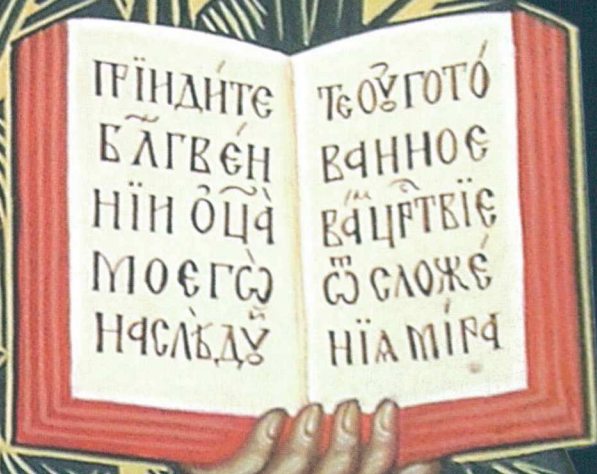 прїиди́те
бл҃гве́н
нїи ѻ҆ц҃а̀
моегѡ̀
наслѣдꙋ́й
те оу҆гото́
ванное
ва́м цр҃твїе
ѿ сложе́
нїѧ мі́ра